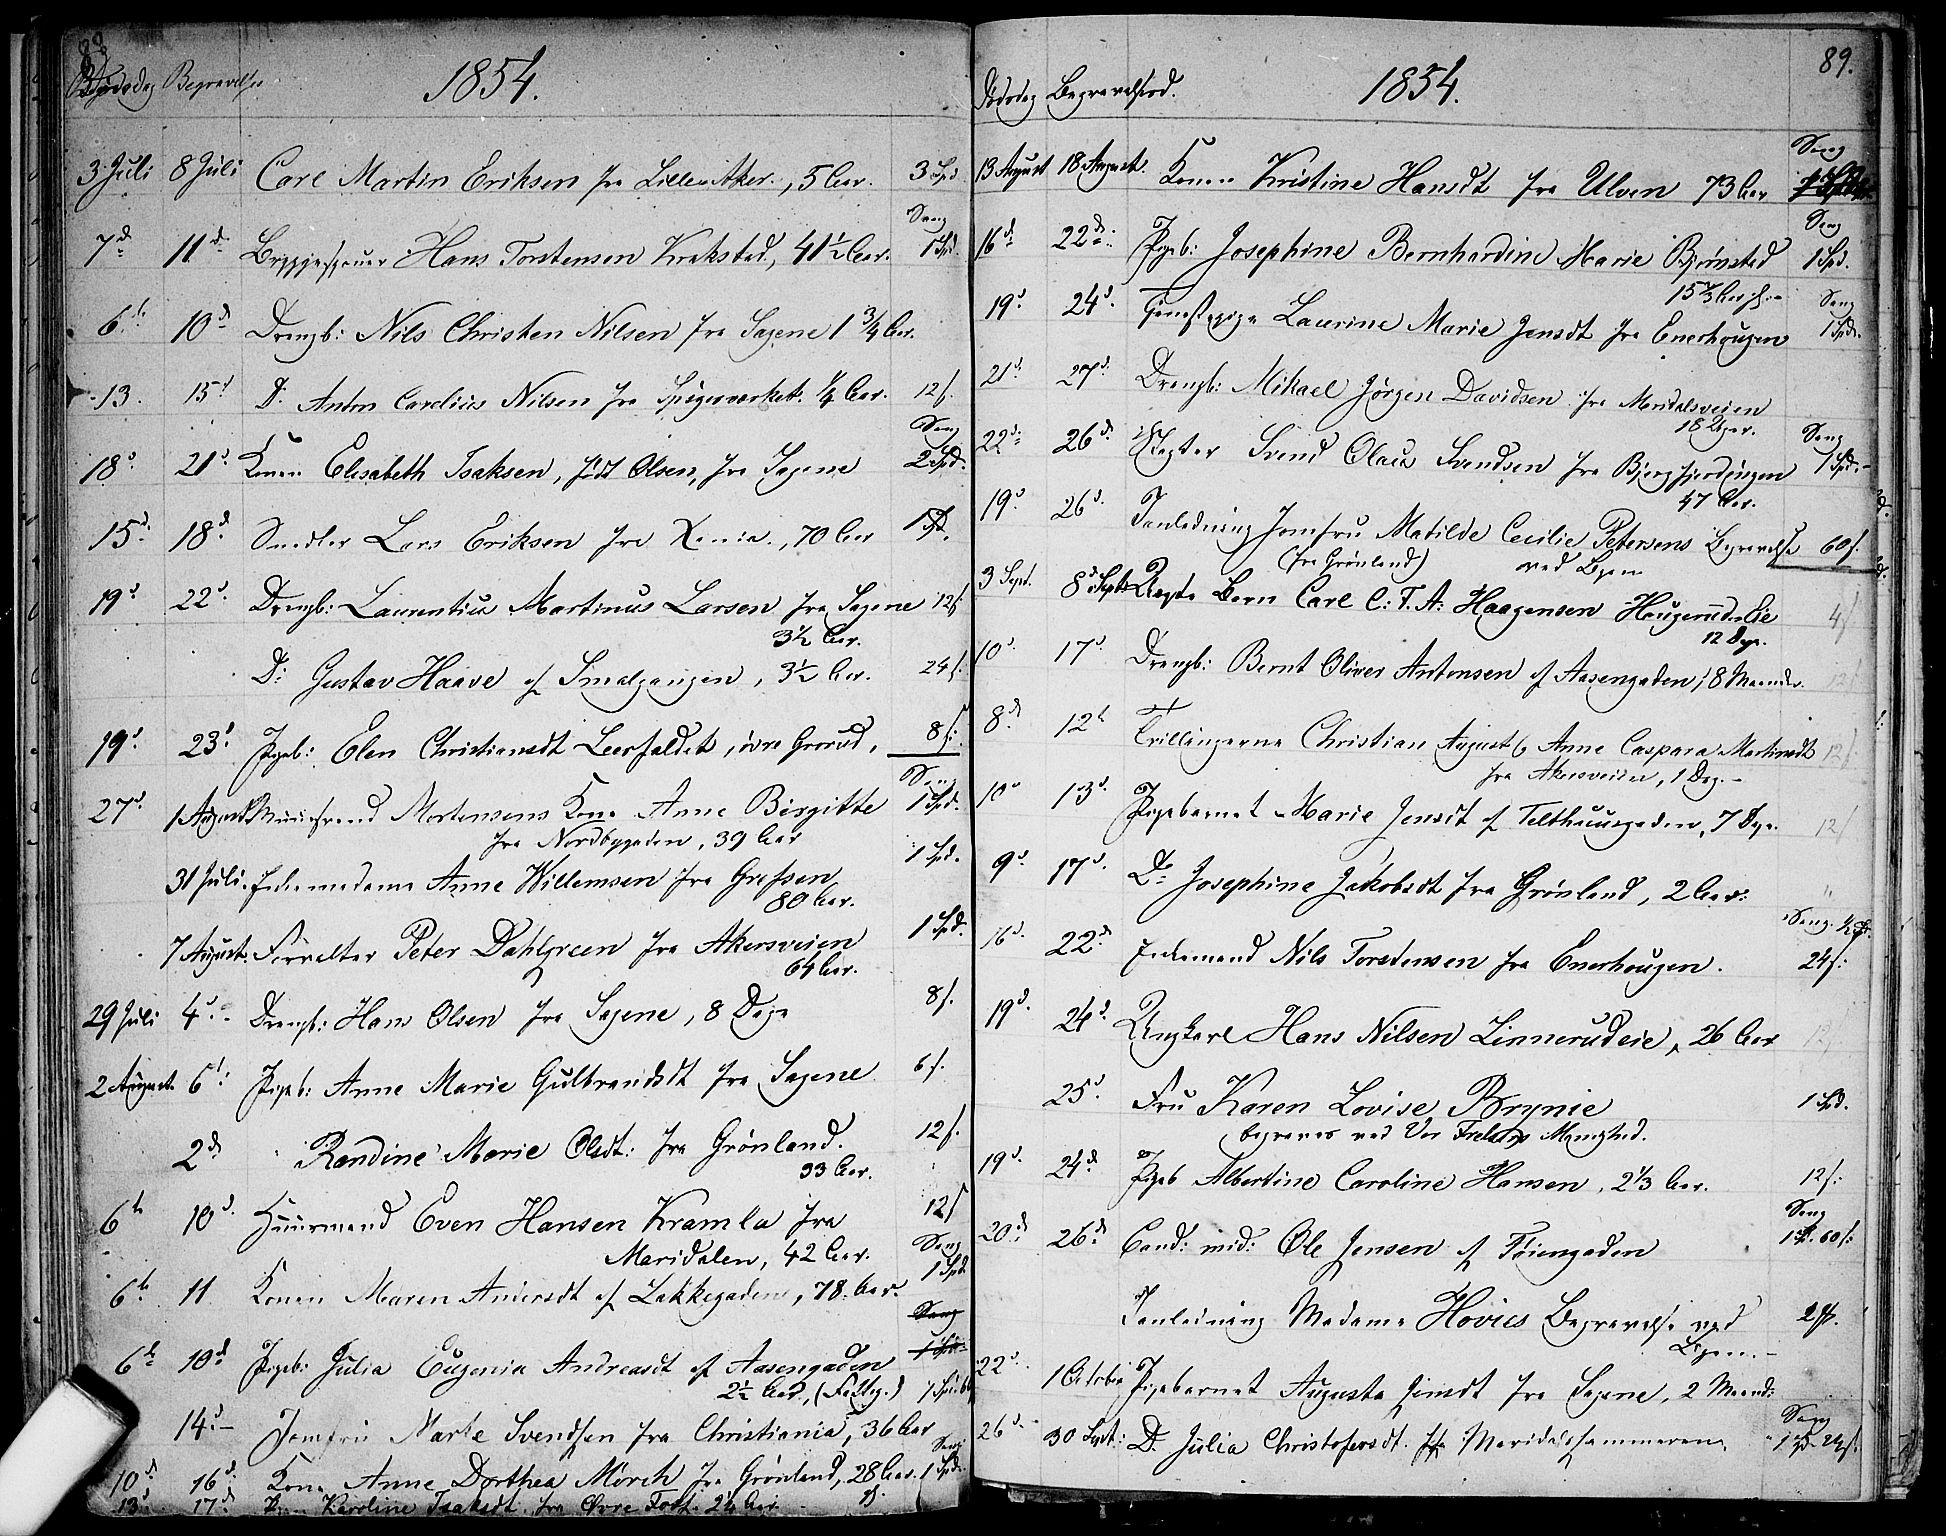 Dødsdag Begravelse 1854.
3 Juli 8 Juli Carl Martin Eriksen fra Lille Aker, 5 Aar. 3 Spd
Sang
7d 11d Hans Torstensen Krakstad, 41½ Aar. 1 Spd.
6te 10d Drengb: Nils Christen Nilsen fra Sagene 1 3/4 Aar.
13. 15d D: Anton Carelius Nilsen fra Spigerverket ¼ Aar. 12 s.
Sang
18d 21d Konen Elisabeth Isaksen, født Olsen, fra Sagene 2 Spd.
15d 18d Snedker Lars Eriksen fra Xania, 70 Aar 1 Spd.
19d 22d Drengb: Laurentius Martinus Larsen fra Sagene 12 s.
3½ Aar.
D: Gustav Haave af Smalgangen, 3½ Aar. 24 s.
19d 23d Pigeb: Elen Christiansdt Leerfaldet, øvre Grorud, 8 s.
Sang
27d 1 August Murersvend Mortensens Kone Anne Birgitte 1 Spd.
fra Nordbygaden, 39 Aar
31 Juli. Anne Willemsen fra Grefsen 1 Spd.
80 Aar.
7 August. Forvalter Peter Dahlgreen fra Akersveien 1 Spd.
64 Aar.
29 Juli 4d Drengb: Hans Olsen fra Sagene, 8 Dage 8 s.
2 August 6d: Pigeb: Anne Marie Gulbrandsdt fra Sagene 6 s.
2d Randine Marie Olsdt: fra Grønland. 12 s.
33 Aar.
6te 10d. Huusmand Even Hansen Kramla fra 12 s
Maridalen, 42 Aar. Sang
6te 11 Konen Maren Andersdt af Lakkegaden, 78 Aar. 1 Spd
Sang
6te 10d Pigeb: Julia Eugenia Andreasdt af Aasengaden 1 Spd
2½ Aar, (Fattig.)
14d Jomfru Marte Svendsen fra Christiania, 36 Aar
Sang
10d 16d. Kone Anne Dorthea Mörch fra Grønland, 28 Aar. 1 Spd.
13d 17d Karoline Isaksdt. fra Øvre Foss. 2¼ Aar
89.
Dødsdag Begravelsesd. 1854.
Sang
13 August 18 August. Konen Kristine Hansdt fra Ulven 73 Aar
Sang
16d 22d: Pigeb: Josephine Bernhardine Marie Bjørnstad 1 Spd.
Sang
19d 24d. Tjenestepige Laurine Marie Jensdt fra Enerhougen 1 Spd.
21d 27d. Drengb: Mikael Jørgen Davidsen fra Maridalsveien
18 Uger. Sang
22d: 26d. Svend Olaus Svendsen fra Bjergfjerdingen 1 Spd.
47 Aar.
19d 26d. I anledning Jomfru Matilde Cecilie Petersens Begravelse 60 s.
(fra Grønland) ved Byen
3 Sept. 8d Septb Uægte Barn Carl C: T. A: Haagensen Haugerud-Eie 4 s
12 Dage.
10d. 17d Drengb: Bernt Oliver Antonsen af Aasengaden, 8 Maaneder. 12
8d 12te Trillingerne Christian August & Anne Caspara Martinsdt 12 s
fra Akersveien, 1 Dag.
10d 13d. Pigebarnet Marie Jensdt af Telthuusgaden, 7 Dage. 12 s
9d. 17d. Do Josephine Jakobsdt fra Grønland, 2 Aar. "
Sang ½
16d. 22d Indemand Nils Torstensen fra Enerhougen. 24 s:
19d. 24d. Ungkarl Hans Nilsen Linnerudeie, 26 Aar 12 s
25d. Fru Karen Lovise Brynie 1 Spd.
begraves ved Vor Frelsers Menighed.
19d. 24d Pigeb Albertine Caroline Hansen, 2⅓ Aar. 12 s:
Sang
20d 26d Cand: med: Ole Jensen af Føiengaden 1 Spd. 60 s:
I anledning Madame Høvies Begravelse ved
Byen.
22d. 1 October Pigebarnet Augusta Jensdt fra Sagene, 2 Maaned:
Sang
26d. 30 Sept: D. Julia Christofersdt. fra Maridalshammeren 1 Spd. 24 s.